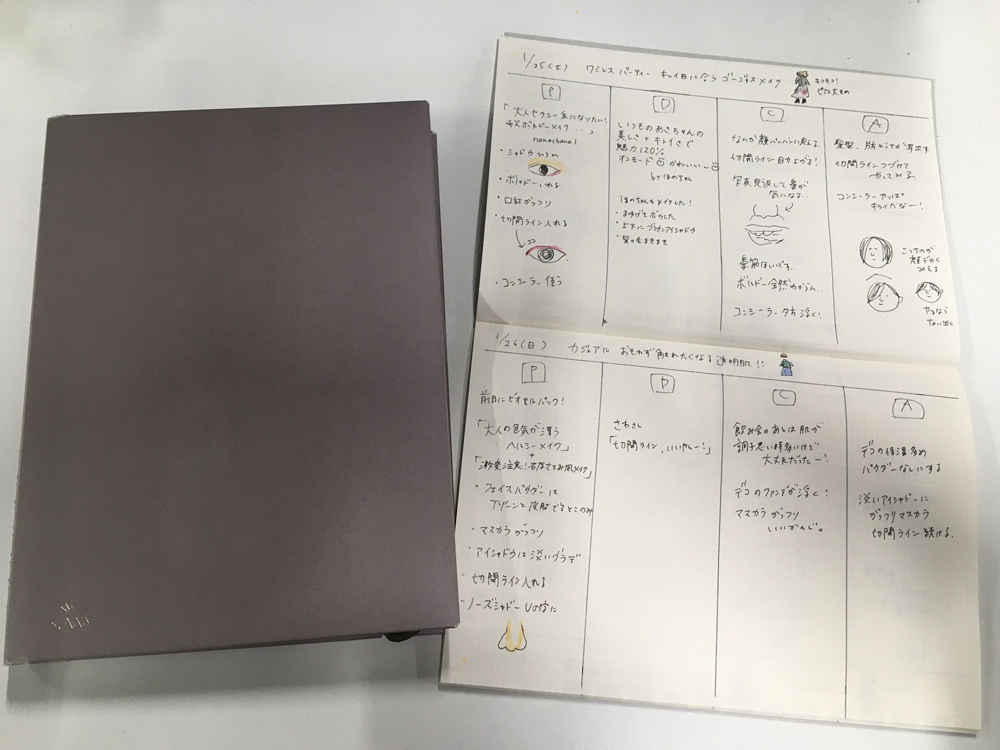 1/25(土) ワミレス パーティー キレイ目に合う ゴージャスメイク
モコモコ!
ピアス大きめ
P
「大人セクシー系になりたい!
秋ボルドーメイク...」
nanachannel
・シャドウひろめ
・ボルドーいれる
・口紅がっつり
・切開ライン入れる
ココ
・コンシーラー使う
D
いつものあさちゃんの
美しさ+キレイさで
魅力120%
オンモード かわいい〜
by ほのちゃん
ほのちゃんもメイクした!
・まゆげをボカした
・上下にブラウンアイシャドウ
・髪の毛まきまき
C
なのか顔パンパンに見える
切開ライン 目力上がる!
写真見返して鼻が
気になる..
鼻筋ほしいです..
ボルドー全然わからん..
コンシーラー夕方浮く!
A
切開ラインつづけて
やってみる。
コンシーラーやっぱ
キライだなー!
こっちのが
顔デカく
みえる
やるなら
ない出し
1/26(日) カジュアル おもわず触れたくなる透明肌!!
P
前日にビオセルパック!
「大人の色気が漂う
ヘルシーメイク」
+
「激変注意!石原さとみ風メイク」
・フェイスパウダーは
Tゾーンと皮脂でるとこのみ
・マスカラがっつり
・アイシャドウは淡いグラデ
・切開ライン入れる
・ノーズシャドー Uの字に
D
さわさん
「切開ライン、いいやんー!」
C
飲み会のあとは肌が
調子悪い時多いけど
大丈夫だったー!
デコのファンデが浮く!
マスカラがっつり
いいかんじ。
A
デコの保湿多め
パウダーなしにする
淡いアイシャドーに
がっつりマスカラ
切開ライン続ける。